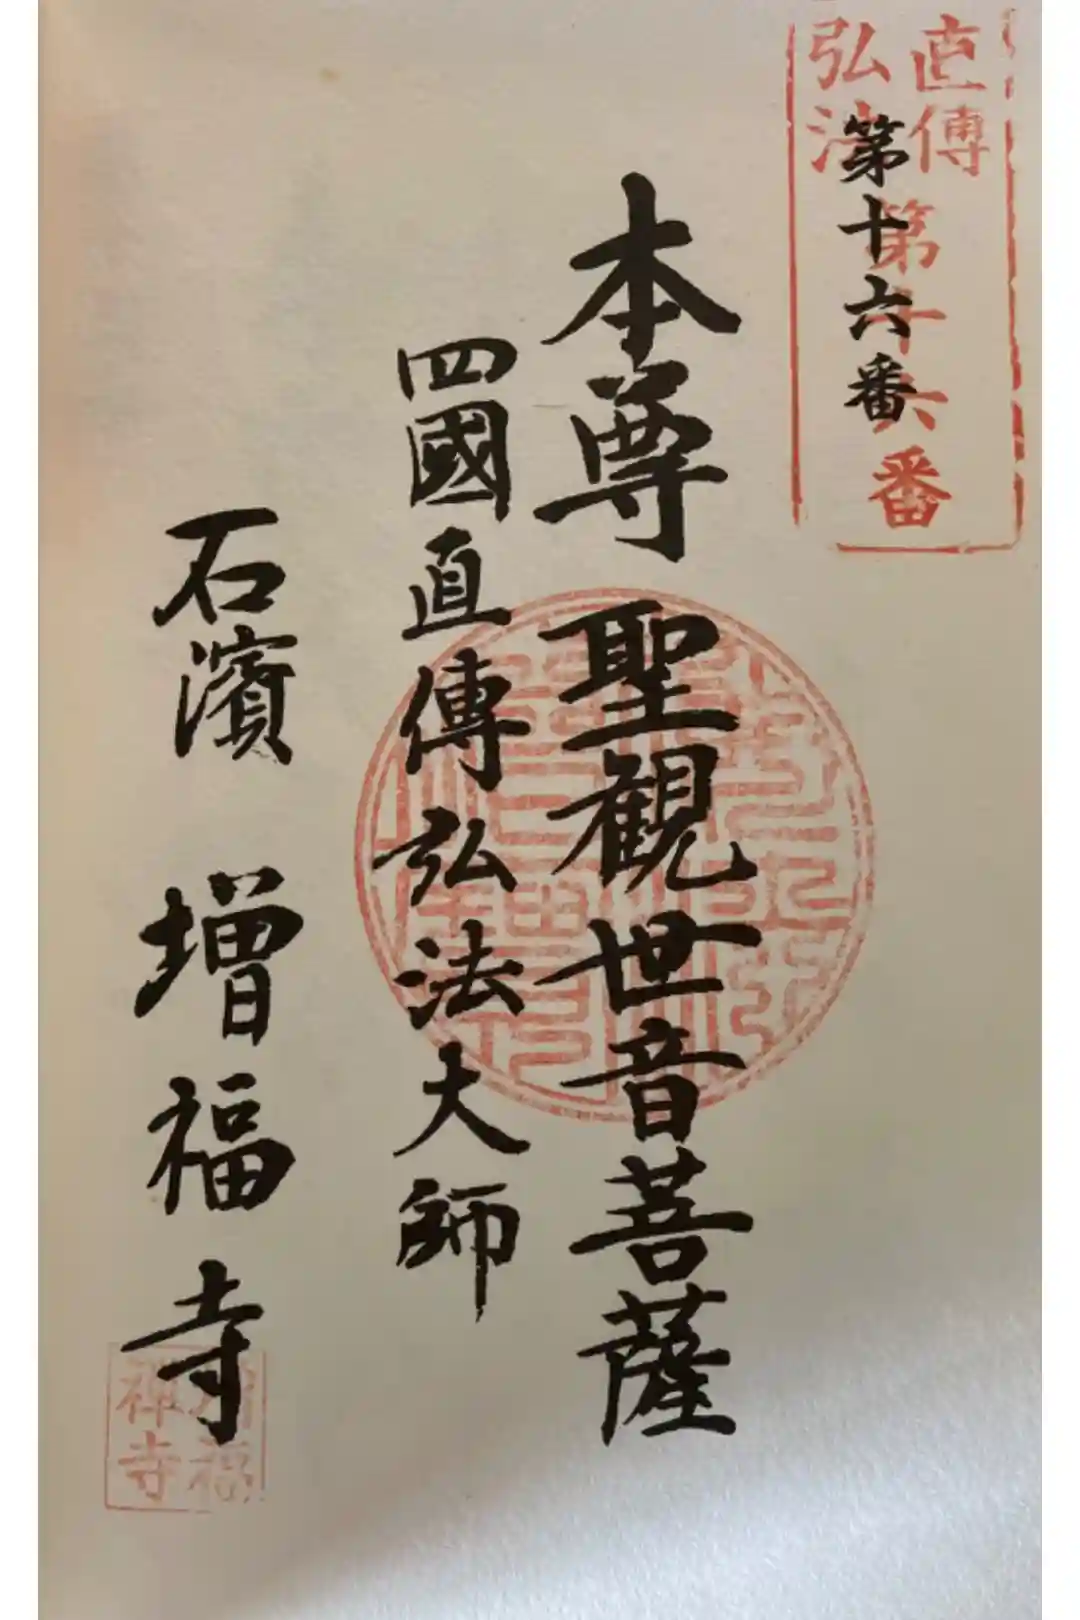 直傳
弘法
第十六番
第十六番
本尊 聖観世音菩薩
四國直傳弘法大師
石濱 増福寺
福
禅寺